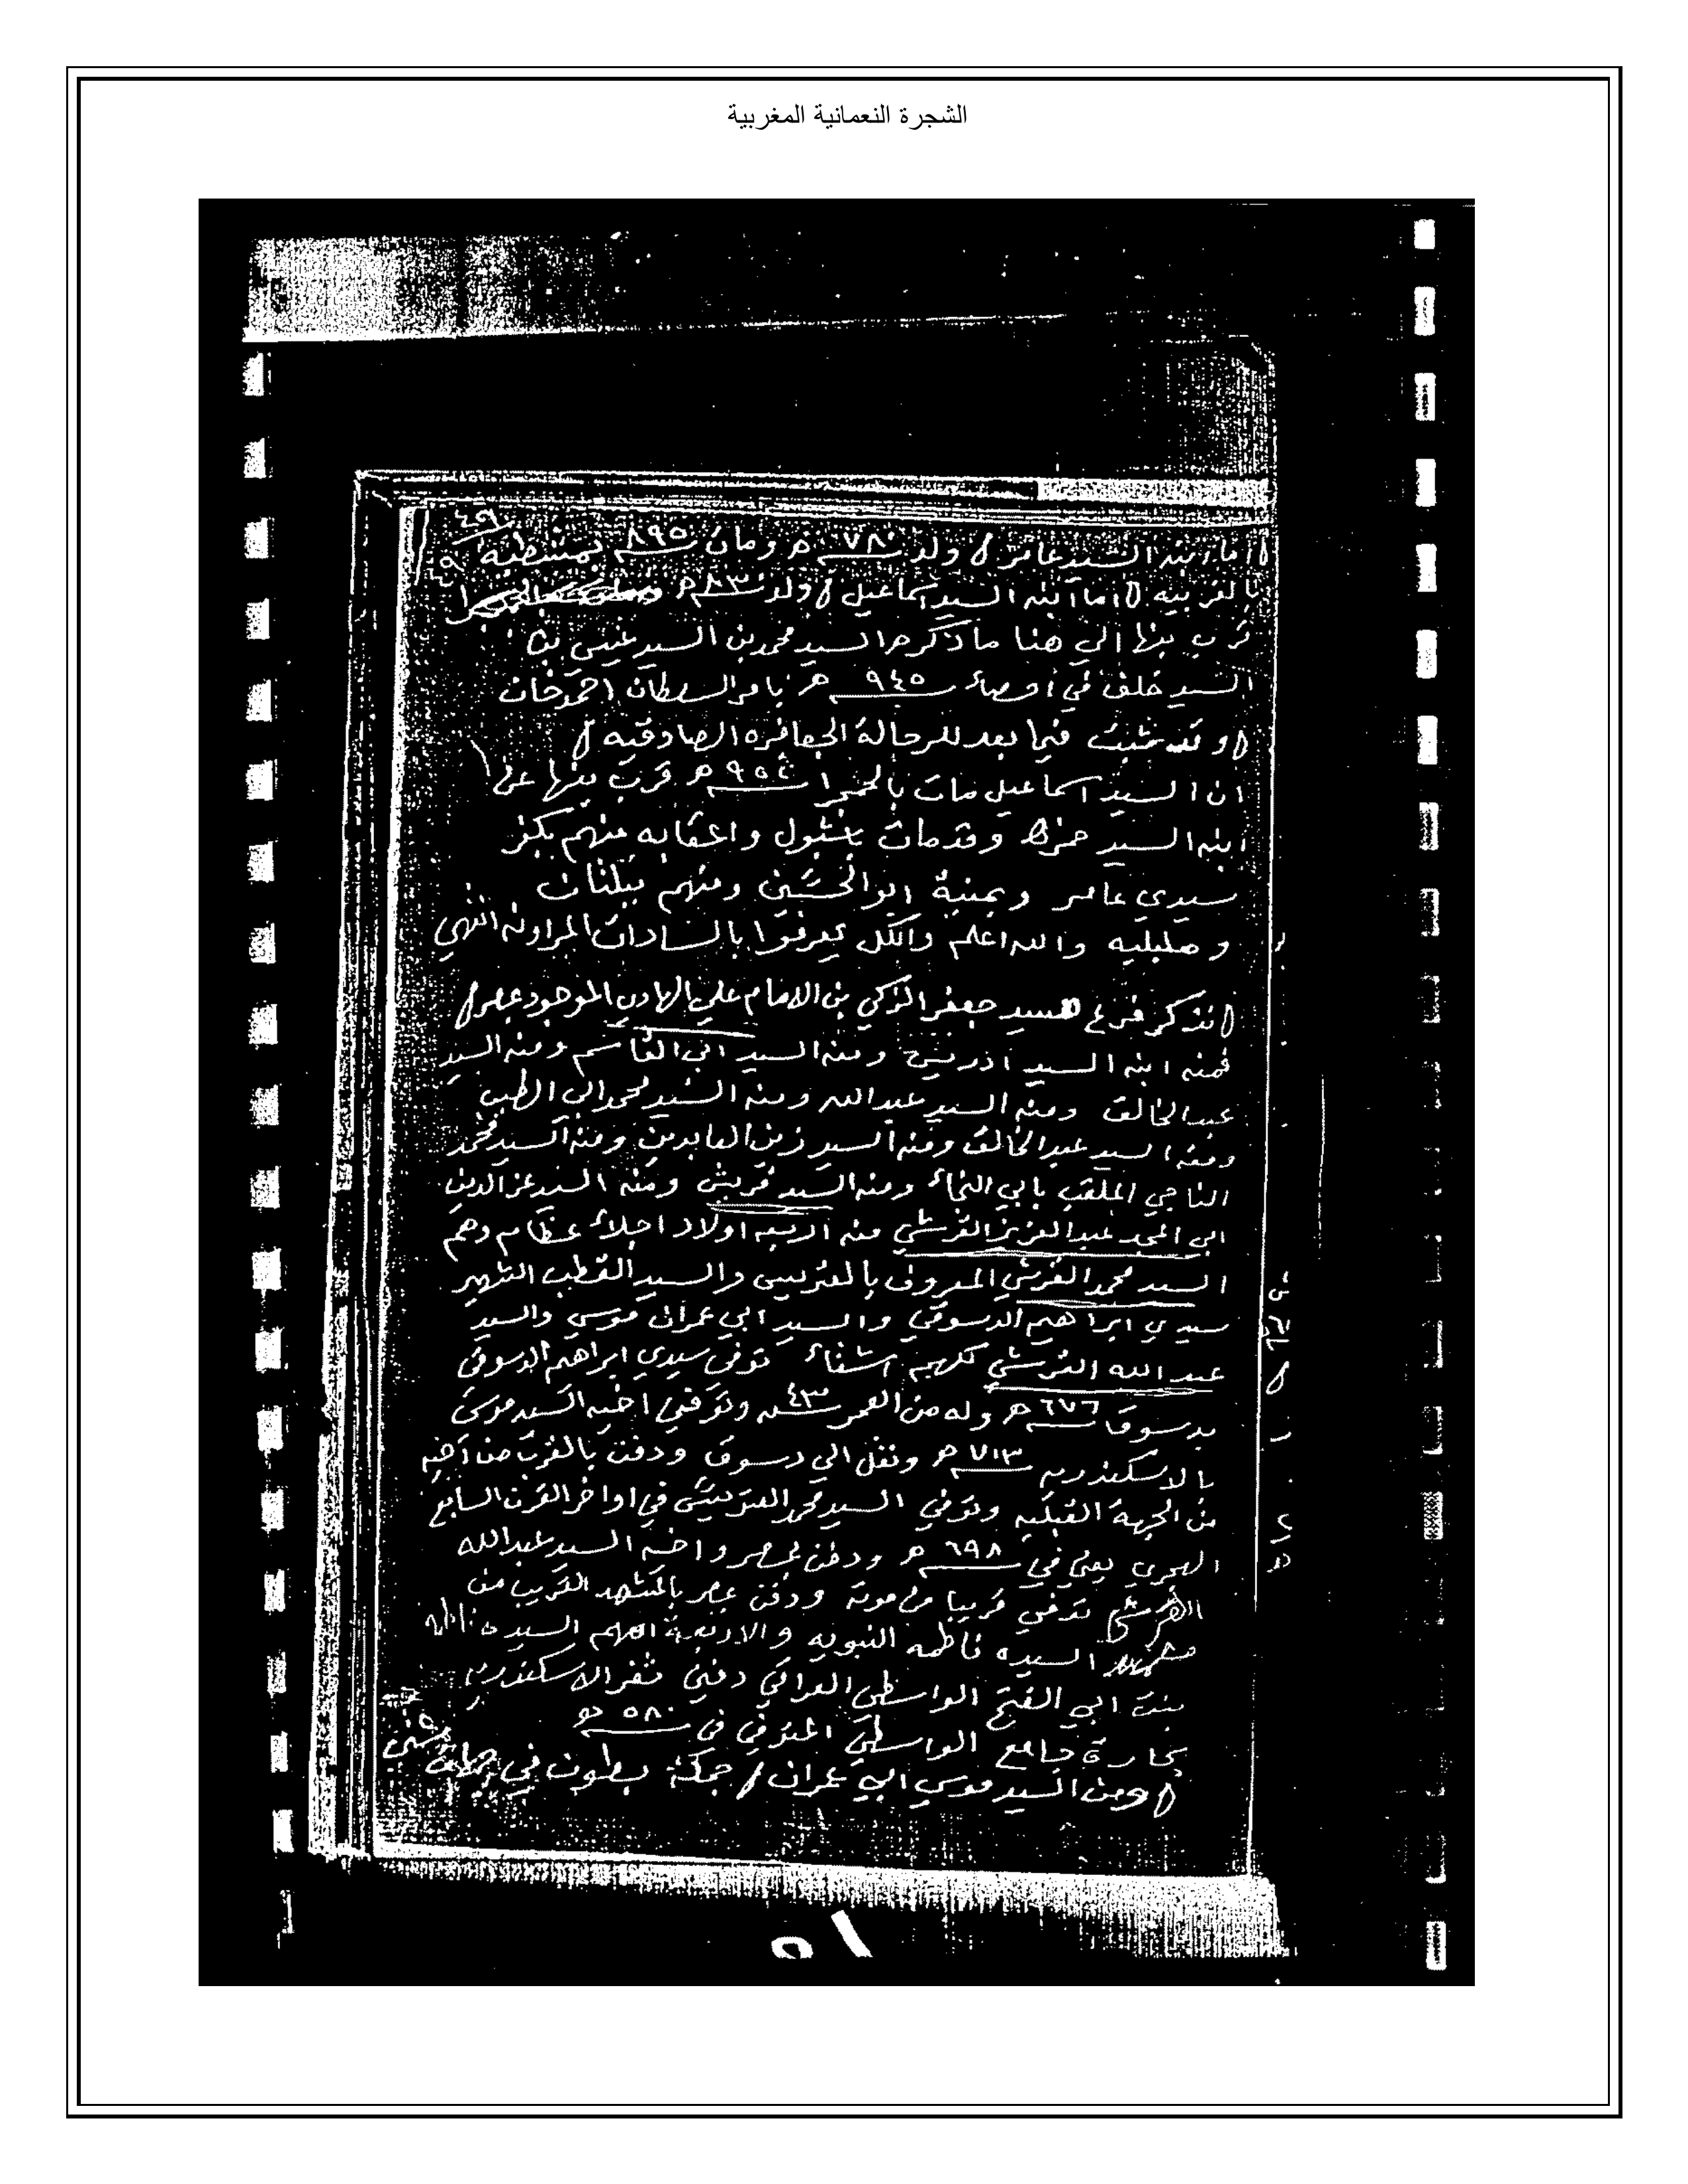 الشجرة النعمانية المغربية
٤٩
اما ابنه السيد عامر ولد ٧٨٠ ه ومات ٨٩٥
بالغربيه اما ابنه السيد اسماعيل ولد ٨٣ ه
قرب بنها الي هنا ما ذكره السيد محمد بن السيد عيسى بن
السيد خلف في ٩٤٥ ه بامر السلطان احمد خان
فيما بعد للرحالة الجعافره الصادقيه
ان السيد اسماعيل مات بالحمرا ٩٥٤ ه قرب بنها على
ابنه السيد حمزه وقد مات واعقابه منهم بكفر
سيدي عامر وبمنية ابو الحسين ومنهم ببلتان
وصليليه والله اعلم والكل يعرفوا بالسادات المراونه انتهي
نذكر فرع السيد جعفر الزكي بن الامام علي الهادي الموجود بمصر
فمنه ابنه السيد ادريس ومنه السيد ابي القاسم ومنه السيد
عبد الخالق ومنه السيد عبد الله ومنه السيد محمد ابي الطيب
ومنه السيد عبد الخالق ومنه السيد زين العابدين ومنه السيد محمد
الناجي الملقب بابي النجاء ومنه السيد قريش ومنه السيد عز الدين
ابي المجد عبد العزيز القرشي منه اربعه اولاد اجلاء عظام وهم
السيد محمد القرشي المعروف بالعتريسي والسيد القطب الشهير
سيدي ابراهيم الدسوقي والسيد ابي عمران موسي والسيد
عبد الله القرشي كلهم اشقاء توفى سيدي ابراهيم الدسوقى
بدسوق ٦٧٦ ه وله من العمر ٤٣ سنه وتوفي اخيه السيد موسى
بالاسكندريه ٧١٣ ه ونقل الي دسوق ودفن بالقرب من اخيه
من الجهة القبليه وتوفي السيد محمد العتريسى في اواخر القرن السابع
الهجري يعني في ٦٩٨ ه ودفن بمصر واخيه السيد عبد الله
القرشي توفي قريبا من موته ودفن بمصر بالمشهد القريب من
مشهد السيده فاطمه النبويه والاربعة امهم السيده فاطمه
بنت ابي الفتح الواسطي العراقي دفين ثغر الاسكندريه
بحارة جامع الواسطي المتوفي في ٥٨٠ ه
ومن السيد موسي ابي عمران جملة بطون في